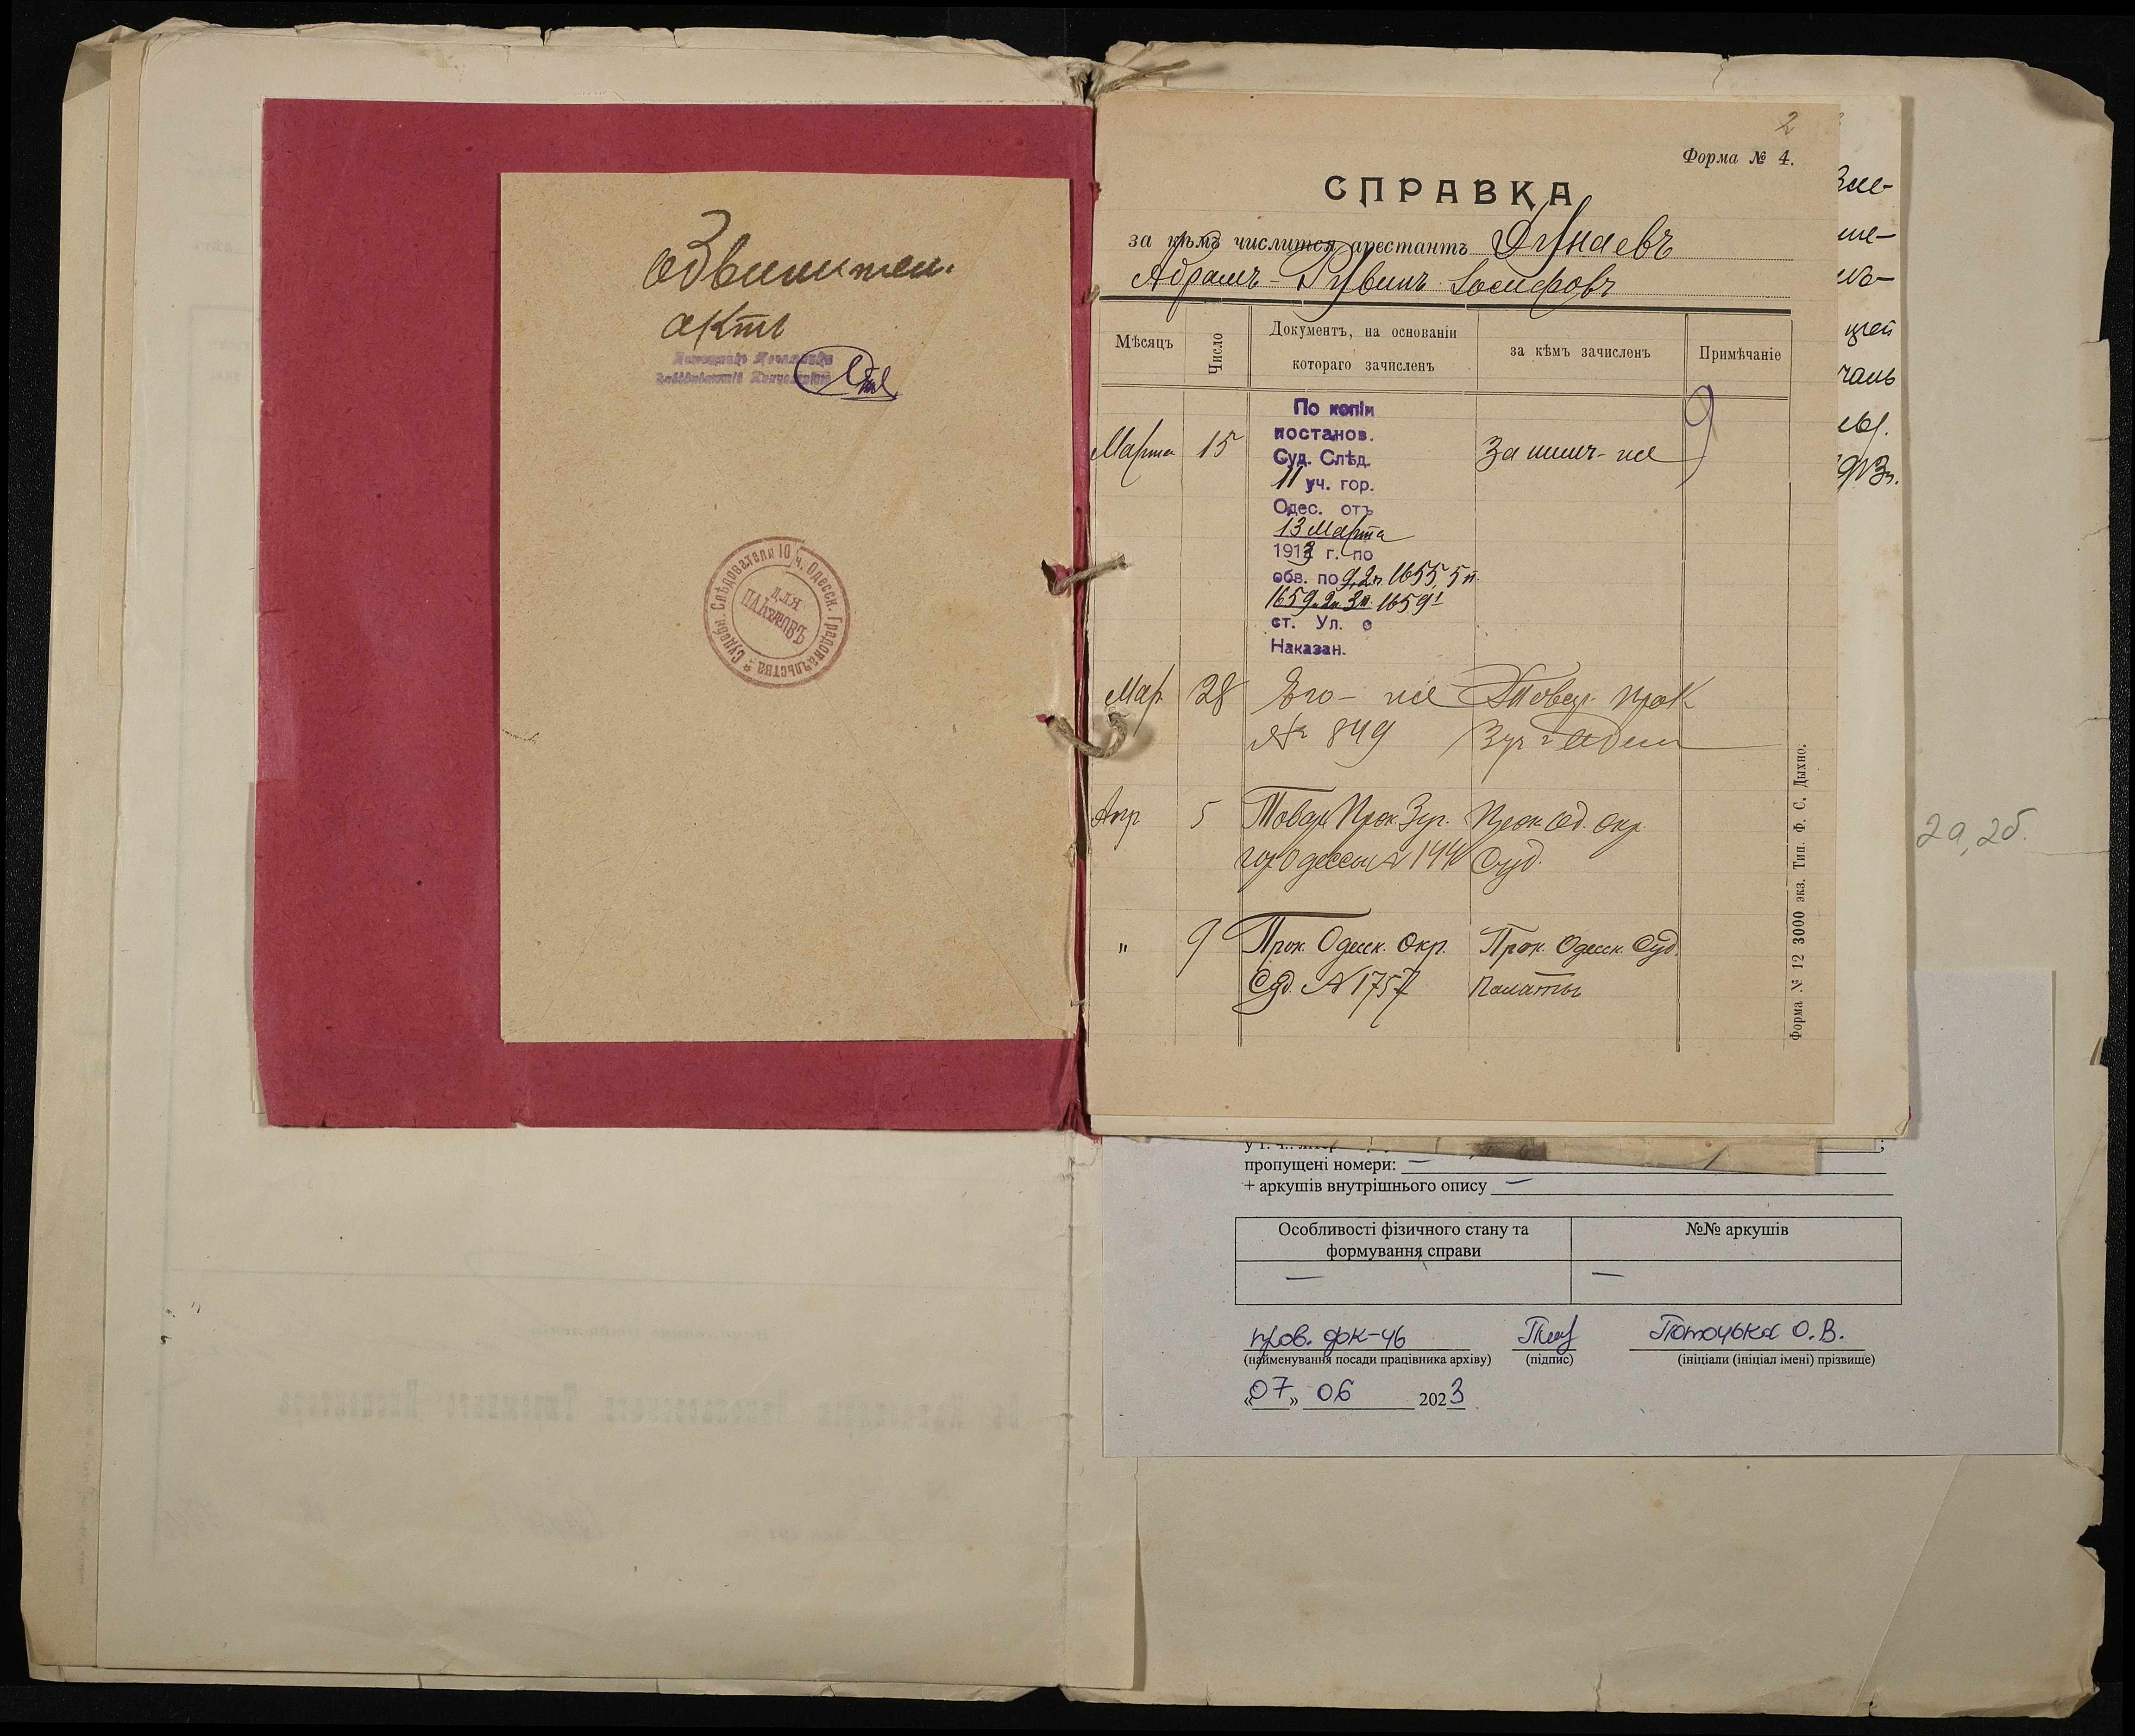 Обвинител.
актъ
Помощникъ Начальника
Судебн. Слѣдователя 10 уч. Одесск. Градоначальства *
для
пакетовъ
2
Форма № 4.
СПРАВКА
за кѣмъ числится арестантъ Дунаевъ
Абрамъ-Рувинъ Іосифовъ
Мѣсяцъ
Число
Документъ, на основаніи
котораго зачисленъ
за кѣмъ зачисленъ
Примѣчаніе
По копіи
постанов.
Марта 15 Суд. Слѣд. За нимъ-же
11 уч. гор.
Одес. отъ
13 Марта
1913 г. по
обв. по 9, 2 п. 1655, 5 п.
1659, 2 и 3 п. 1659¹
ст. Ул. о
Наказан.
Мар 28 Его-же Товар. Прок
№ 849 3 уч г Одес
Апр 5 Товар Прок. 3 уч. Прок Од. Окр.
гор Одессы № 144 Суд.
" 9 Прок. Одесск. Окр. Прок. Одесск. Суд.
Суд. № 1757 Палаты
Форма № 12 3000 экз. Тип. Ф. С. Дыхно.
2а, 2б.
пропущені номери: —
+ аркушів внутрішнього опису —
Особливості фізичного стану та
формування справи
№№ аркушів
— —
пров. фк-46 Поточька О.В.
(найменування посади працівника архіву) (підпис) (ініціали (ініціал імені) прізвище)
«07» 06 2023